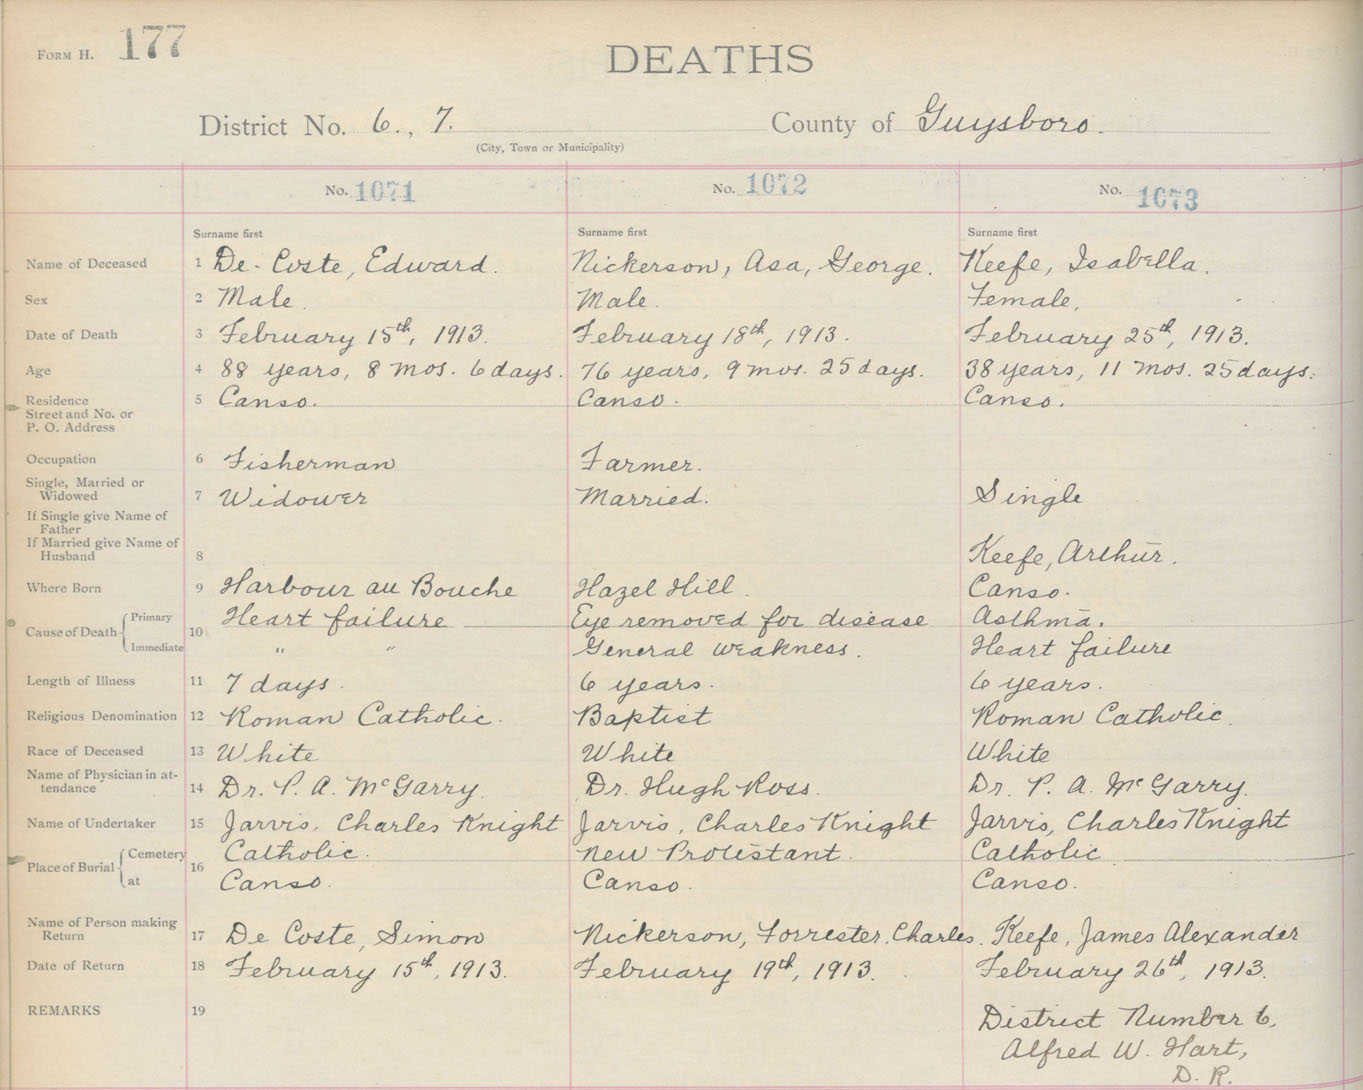 FORM H. 177
DEATHS
District No. 6., 7. County of Guysboro.
(City, Town or Municipality)
No. 1071 No. 1072 No. 1073
Surname first Surname first Surname first
Name of Deceased 1 De-Coste, Edward. Nickerson, Asa, George. Keefe, Isabella.
Sex 2 Male. Male. Female.
Date of Death 3 February 15th, 1913. February 18th, 1913. February 25th, 1913.
Age 4 88 years, 8 mos. 6 days. 76 years, 9 mos. 25 days. 38 years, 11 mos. 25 days.
Residence 5 Canso. Canso. Canso.
Street and No. or
P. O. Address
Occupation 6 Fisherman Farmer.
Single, Married or
Widowed 7 Widower Married. Single
If Single give Name of
Father
If Married give Name of
Husband 8 Keefe, Arthur.
Where Born 9 Harbour au Bouche Hazel Hill. Canso.
Cause of Death Primary 10 Heart failure Eye removed for disease Asthma.
Immediate " " General weakness. Heart failure
Length of Illness 11 7 days. 6 years. 6 years.
Religious Denomination 12 Roman Catholic. Baptist Roman Catholic.
Race of Deceased 13 White White White
Name of Physician in at-
tendance 14 Dr. P. A. McGarry. Dr. Hugh Ross. Dr. P. A. McGarry.
Name of Undertaker 15 Jarvis, Charles Knight Jarvis, Charles Knight Jarvis, Charles Knight
Place of Burial Cemetery 16 Catholic. New Protestant. Catholic
at Canso. Canso. Canso.
Name of Person making
Return 17 De Coste, Simon Nickerson, Forrester, Charles. Keefe, James Alexander
Date of Return 18 February 15th, 1913. February 19th, 1913. February 26th, 1913.
REMARKS 19 District Number 6.
Alfred W. Hart,
D. R.